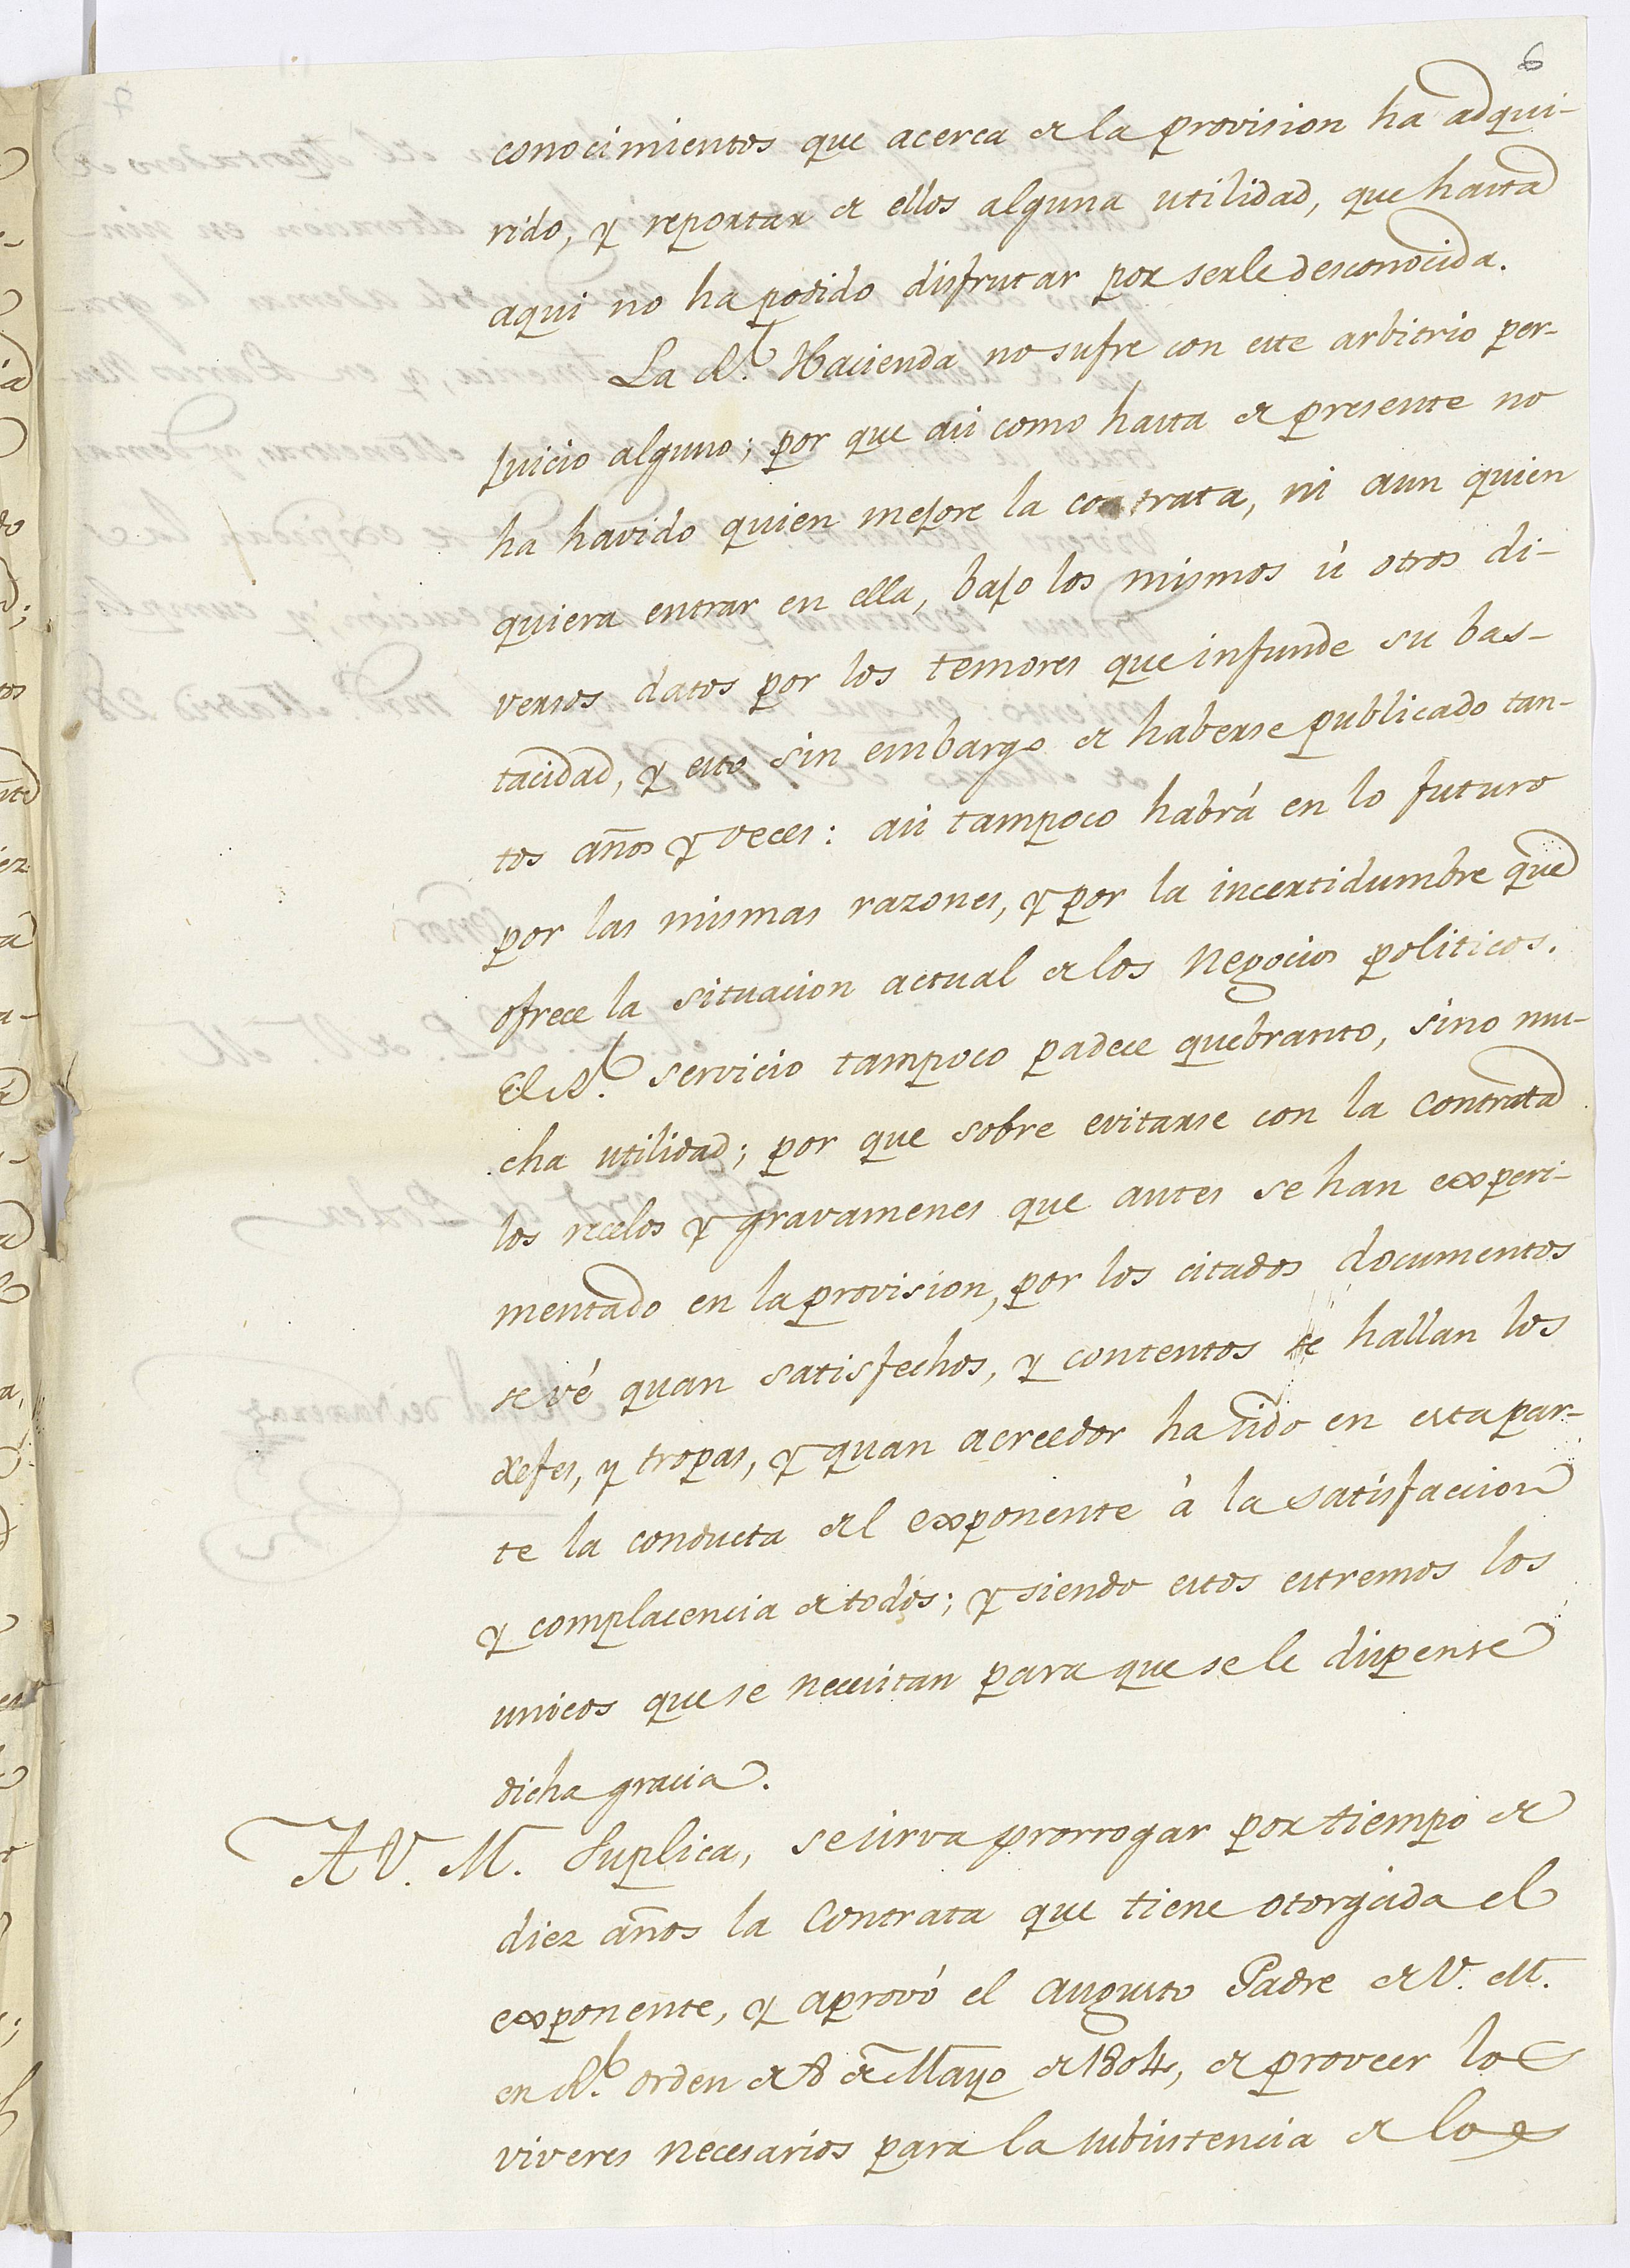 6
conocimientos que acerca de la provision ha adqui-
rido, y reportar de ellos alguna utilidad, que hasta
aqui no ha podido disfrutar por serle desconocida.
La Rl. Hacienda no sufre con este arbitrio per-
juicio alguno; por que asi como hasta de presente no
ha havido quien mejore la contrata, ni aun quien
quiera entrar en ella, bajo los mismos ù otros di-
versos datos por los temores que infunde su bas-
tacidad, y esto sin embargo de haberse publicado tan-
tos años y veces: asi tampoco habrá en lo futuro
por las mismas razones, y por la incertidumbre que
ofrece la situacion actual de los negocios politicos.
El Rl. servicio tampoco padece quebranto, sino mu-
cha utilidad; por que sobre evitarse con la contrata
los recelos y gravamenes que antes se han experi-
mentado en la provision, por los citados documentos
se vé quan satisfechos, y contentos se hallan los
xefes, y tropas, y quan acreedor ha sido en esta par-
te la conducta del exponente à la satisfaccion
y complacencia de todos; y siendo estos estremos los
unicos que se necesitan para que se le dispense
dicha gracia.
A V. M. Suplica, se sirva prorrogar por tiempo de
diez años la Contrata que tiene otorgada el
exponente, y aprovó el augusto Padre de V. M.
en Rl. orden de 8 de Mayo de 1804, de proveer los
viveres necesarios para la subsistencia de los